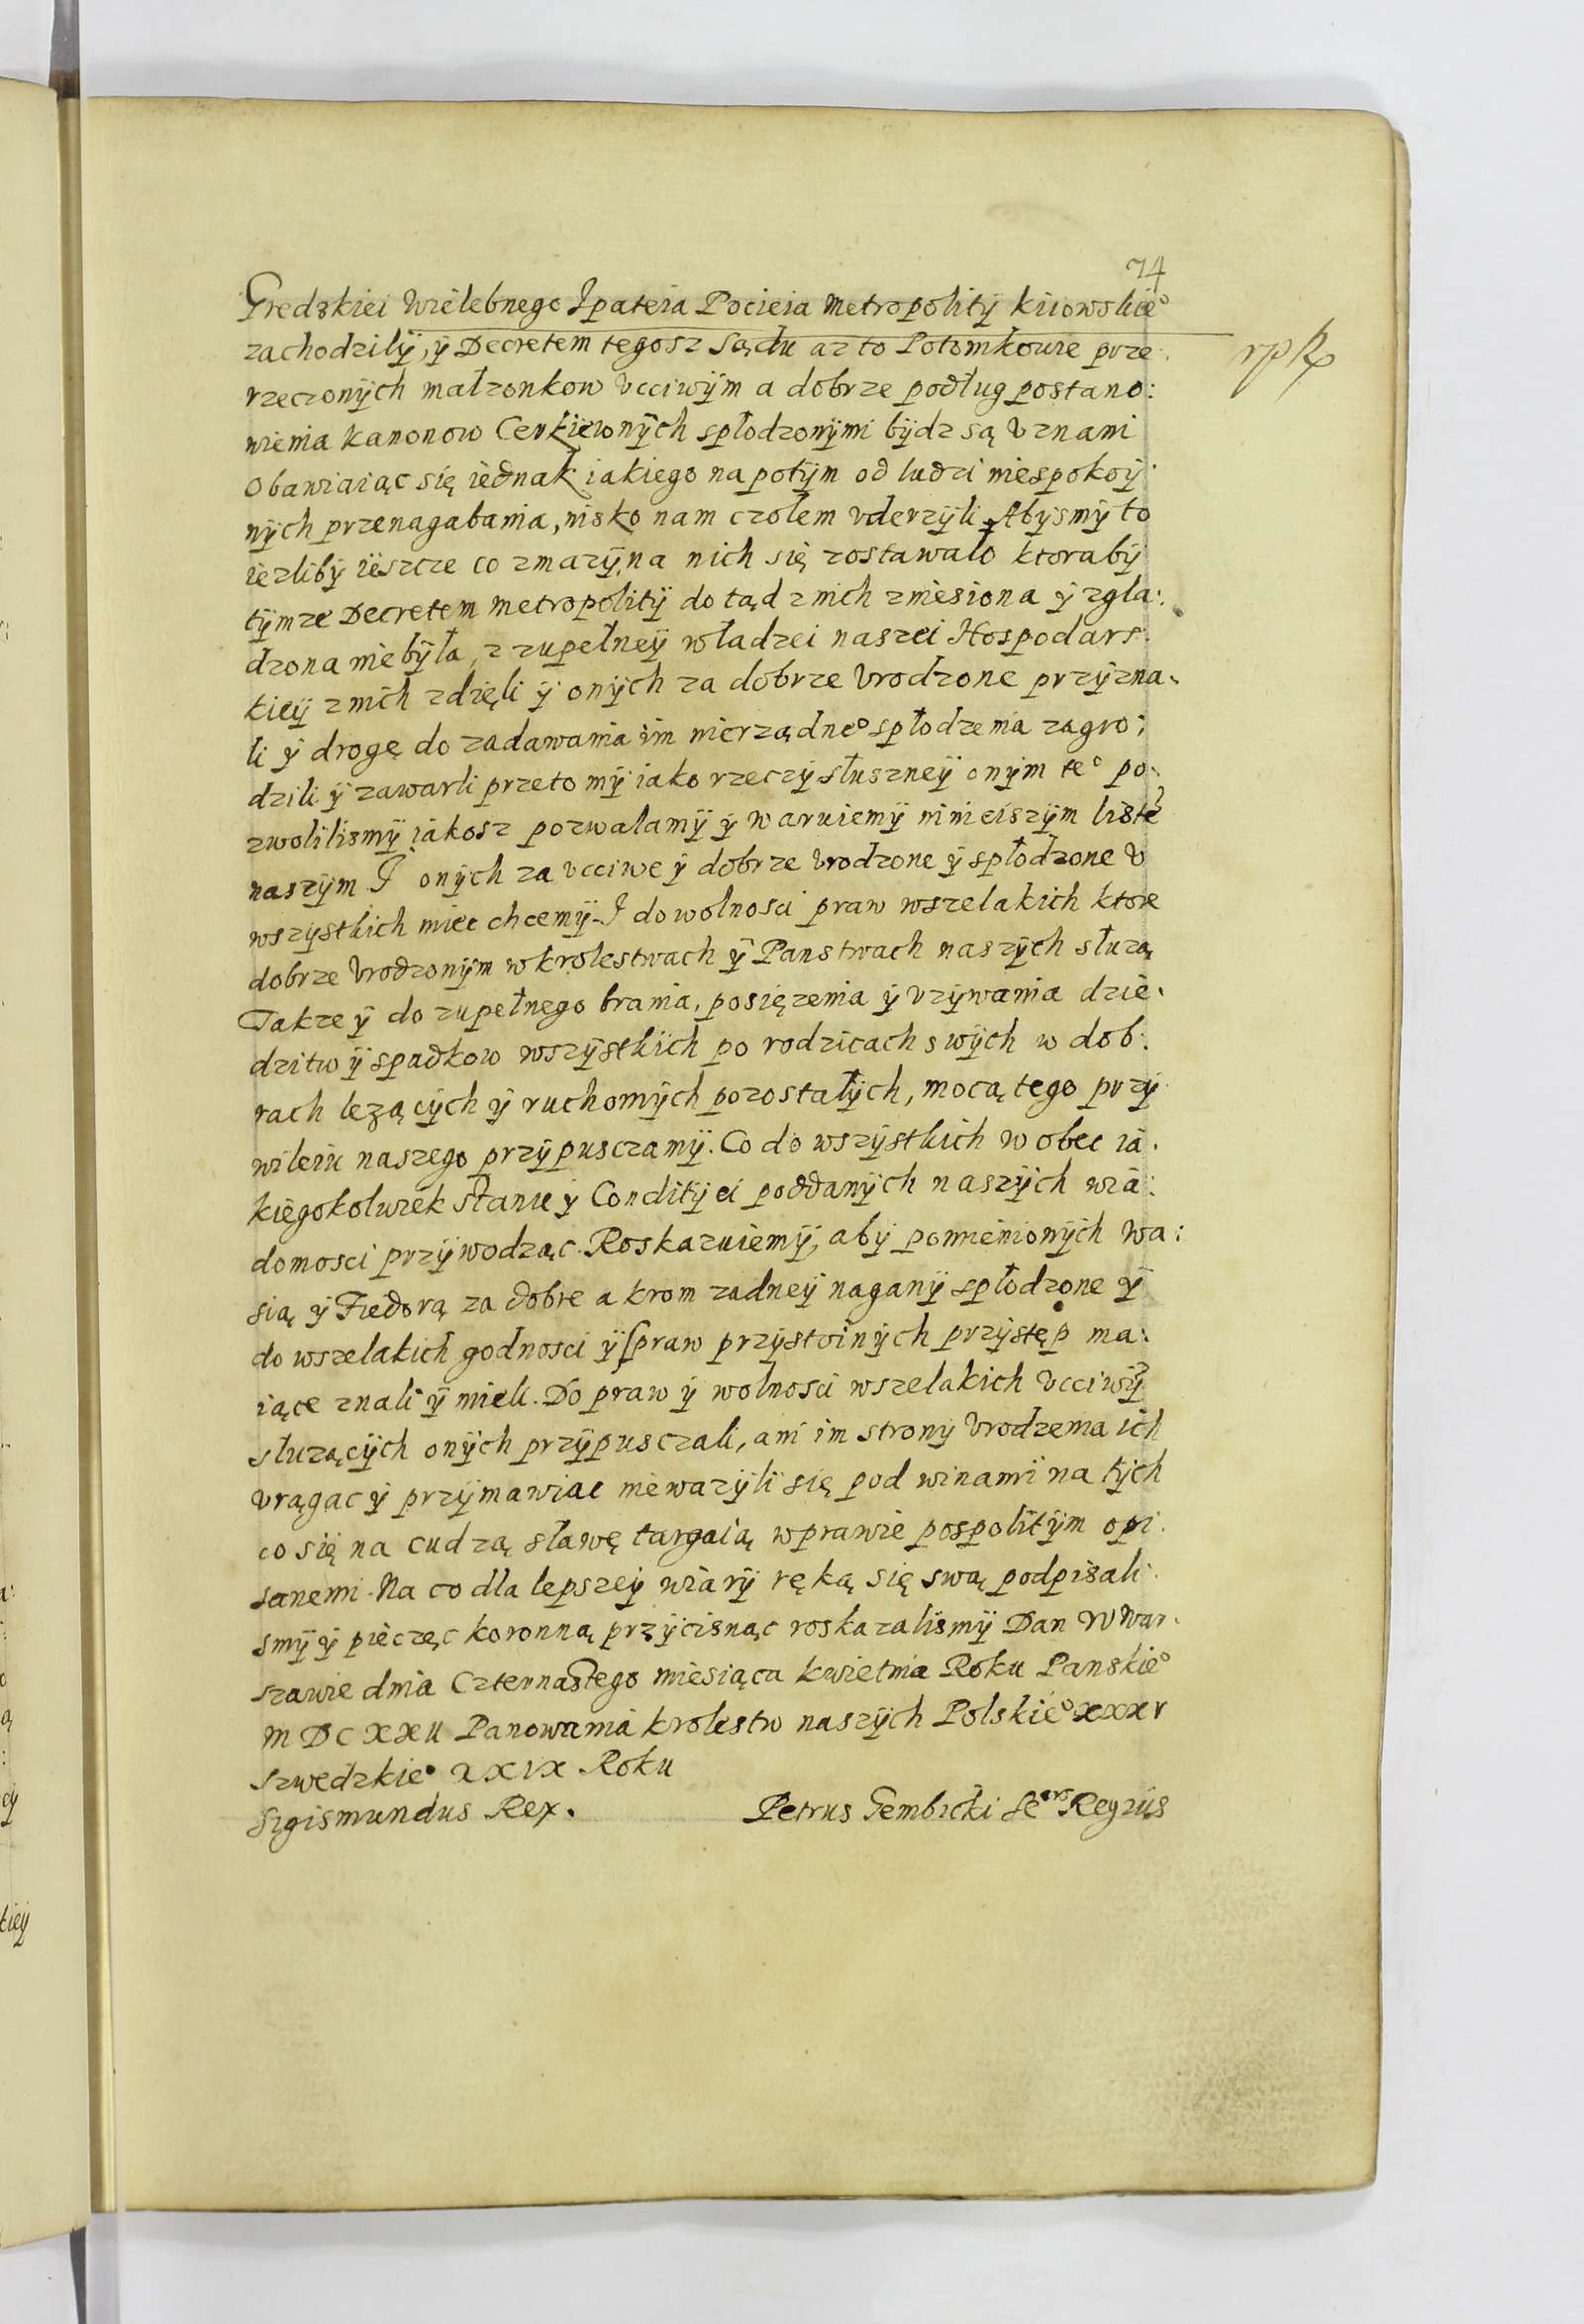 74
Gredzkiei Wielebnego Ipateia Pocieia Metropolity kiiowskie°
zachodziłÿ, ÿ Decretem tegosz sądu az to Potomkowie prze:
rzeczonÿch małzonkow vcciwÿm a dobrze podług postano:
wienia kanonow Cerkiewnÿch spłodzonÿmi bÿdz są vznani
obawiaiąc się iednak iakiego na potÿm od ludzi niespokoÿ:
nÿch przenagabania, nisko nam czołem vderzÿli Abÿsmÿ to
iezlibÿ ieszcze co zmazÿ na nich się zostawało ktorabÿ
tÿmze Decretem metropolitÿ do tąd z nich zniesiona ÿ zgła:
dzona nie bÿła, z zupełneÿ władzei naszei Hospodars:
kieÿ z nich zdięli ÿ onÿch za dobrze vrodzone przÿzna:
li ÿ drogę do zadawania im nierządne° spłodzenia zagro:
dzili ÿ zawarli przeto mÿ iako rzeczÿ słuszneÿ onÿm te° po:
zwolilismÿ iakosz pozwalamÿ ÿ waruiemÿ ninieiszÿm liste
naszÿm I onÿch za vcciwe ÿ dobrze vrodzone ÿ spłodzone v
wszÿstkich miec chcemÿ. I do wolnosci praw wszelakich ktore
dobrze vrodzonÿm w krolestwach ÿ Panstwach naszÿch słuzą
Takze ÿ do zupełnego brania, posięzenia ÿ vzÿwania dzie:
dzitw ÿ spadkow wszÿstkich po rodzicach swÿch w dob:
rach lezącÿch ÿ ruchomÿch pozostałÿch, mocą tego przÿ
wileiu naszego przÿpusczamÿ. Co do wszÿstkich w obec ia:
kiegokolwiek stanu ÿ Conditÿei poddanÿch naszÿch wia:
domosci przÿwodząc. Roskazuiemÿ, abÿ pomienionÿch Wa:
sią ÿ Fiedorą za dobre a krom zadneÿ naganÿ spłodzone ÿ
do wszelakich godnosci ÿ spraw przÿstoinÿch przÿstęp ma:
iące znali ÿ mieli. Do praw ÿ wolnosci wszelakich vcciwÿ
słuzącÿch onÿch przÿpusczali, ani im strony vrodzenia ich
vrągac ÿ przÿmawiac nie wazÿli się pod winami na tÿch
co się na cudzą sławę targaią w prawie pospolitÿm opi:
sanemi. Na co dla lepszeÿ wiarÿ ręką się swą podpisali:
smÿ ÿ pieczęc koronną przÿcisnąc roskazalismÿ Dan W War:
szawie dnia Czternastego miesiąca kwietnia Roku Panskie°
M D C XXII Panowania krolestw naszÿch Polskie° XXXV
szwedzkie° XXIX Roku
Sigismundus Rex. Petrus Gembicki Secr. Regius